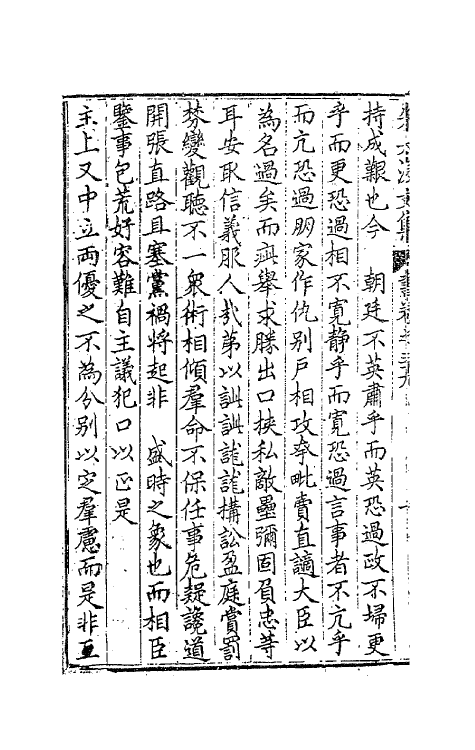 持成艱也今　朝廷不英肅乎而英恐過政不掃更
乎而更恐過相不寬静乎而寬恐過言事者不亢乎
而亢恐過朋家作仇别戸相攻奉毗費直讁大臣以
為名過矣而疵舉求勝出口挾私敵壘彌固負忠等
耳安取信義服人㢤第以訿訿詭詭搆訟盈庭賞罰
棼變觀聽不一衆術相傾羣命不保任事危疑諓道
開張直路且塞黨禍將起非　盛時之象也而相臣
鑒事包荒好容難自主議犯口以正是
主上又中立两優之不為分别以定羣慮而是非互